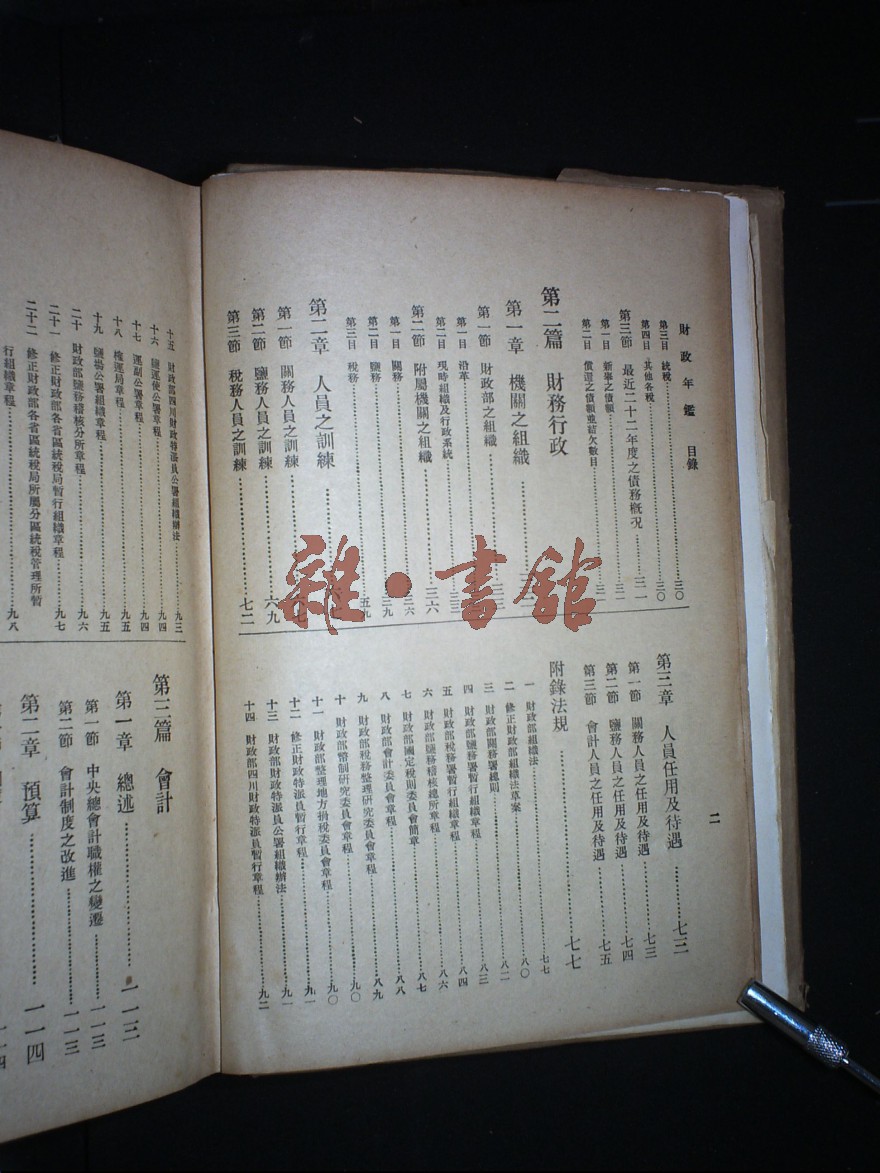 財政年鑑 目錄
第三目 統稅 三〇
第四目 其他各稅 三〇
第三節 最近二十二年度之債務概況 三一
第一目 新舉之債額
第二目 償還之債額並結欠數目
第二篇 財務行政
第一章 機關之組織
第一節 財政部之組織
第一目 沿革
第二目 現時組織及行政系統
第二節 附屬機關之組織 三六
第一目 關務 三六
第二目 鹽務 三九
第三目 稅務 五九
第二章 人員之訓練
第一節 關務人員之訓練
第二節 鹽務人員之訓練 六九
第三節 稅務人員之訓練 七二
第三章 人員任用及待遇 七三
第一節 關務人員之任用及待遇 七三
第二節 鹽務人員之任用及待遇 七四
第三節 會計人員之任用及待遇 七五
附錄法規 七七
一 財政部組織法 七七
二 修正財政部組織法草案 八〇
三 財政部關務署總則 八二
四 財政部鹽務署暫行組織章程 八三
五 財政部稅務署暫行組織章程 八四
六 財政部鹽務稽核總所章程 八六
七 財政部國定稅則委員會簡章 八七
八 財政部會計委員會章程 八八
九 財政部稅務整理研究委員會章程 八九
十 財政部幣制研究委員會章程 九〇
十一 財政部整理地方捐稅委員會章程 九〇
十二 修正財政特派員暫行章程 九一
十三 財政部財政特派員公署組織辦法 九一
十四 財政部四川財政特派員暫行章程 九二
二
十五 財政部四川財政特派員公署組織辦法 九三
十六 鹽運使公署章程 九四
十七 運副公署章程 九四
十八 榷運局章程 九五
十九 鹽場公署組織章程 九五
二十 財政部鹽務稽核分所章程 九六
二十一 修正財政部各省區統稅局暫行組織章程 九七
二十二 修正財政部各省區統稅局所屬分區統稅管理所暫
行組織章程 九八
第三篇 會計
第一章 總述 一一三
第一節 中央總會計職權之變遷 一一三
第二節 會計制度之改進 一一三
第二章 預算 一一四
雜·書館